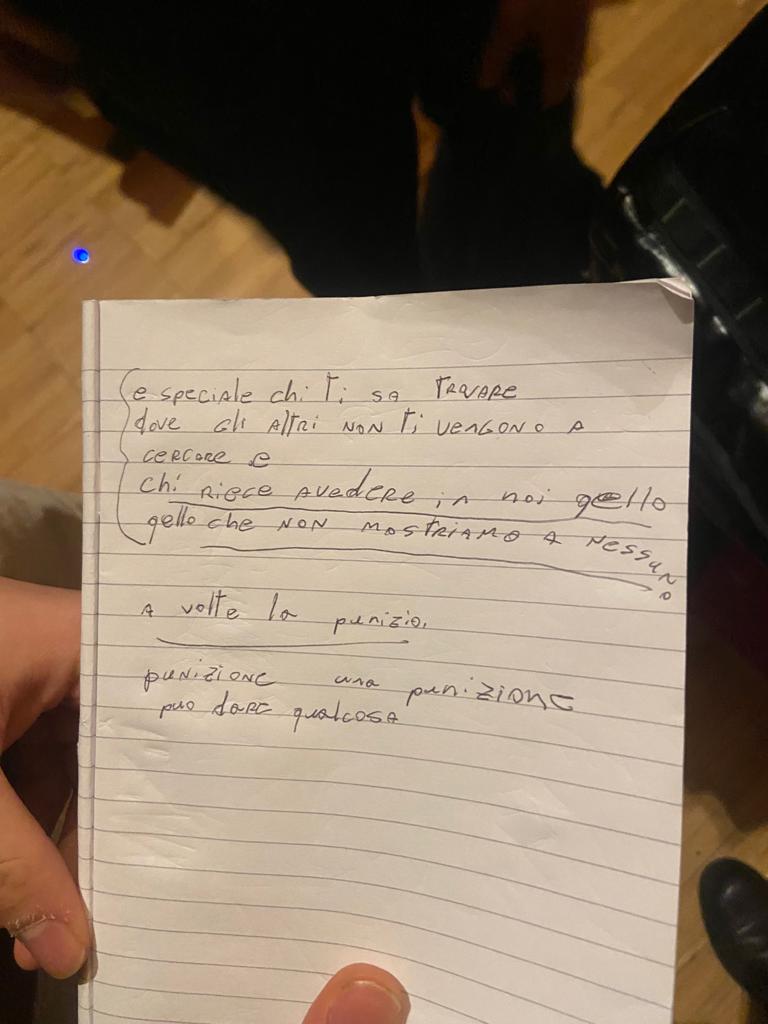 e speciale chi Ti sa TROVARE
dove gli Altri NON Ti VENGONO A
cercare e
chi riece Avedere in noi qello
qello che NON MOSTRIAMO A NESSUNO
A volte la punizio.
PUNIZIONE una punIZIONE
puo DARE qualcosa